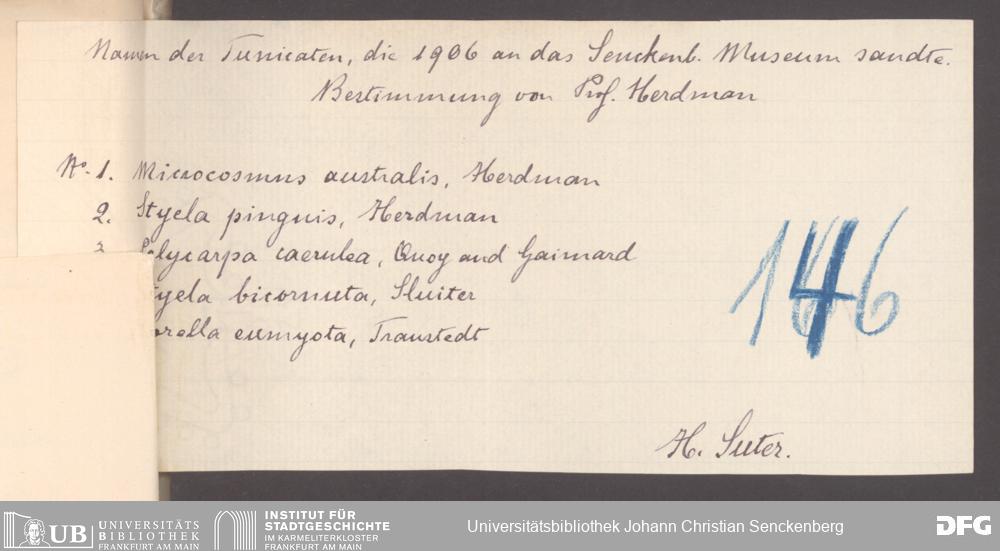 Namen der Tunicaten, die 1906 an das Senckenb. Museum sandte.
Bestimmung von Prof. Herdman
No. 1. Microcosmus australis, Herdman
2. Styela pinguis, Herdman
Polycarpa caerulea, Quoy and Gaimard
tyela bicornuta, Sluiter
orella eumyota, Traustedt
146
H. Suter.
UB UNIVERSITÄTS BIBLIOTHEK FRANKFURT AM MAIN
INSTITUT FÜR STADTGESCHICHTE IM KARMELITERKLOSTER FRANKFURT AM MAIN
Universitätsbibliothek Johann Christian Senckenberg
DFG